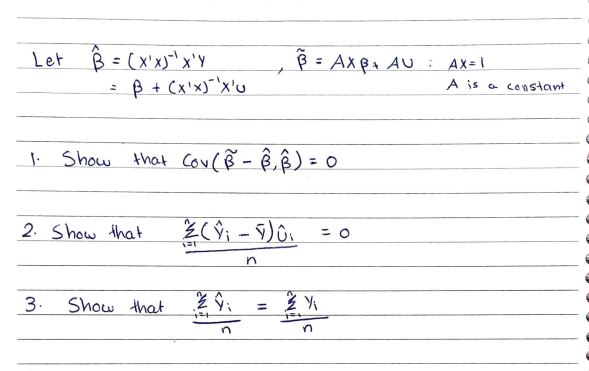 Let β̂ = (X'X)⁻¹X'Y , β̃ = AXβ + AU : AX=1
= β + (X'X)⁻¹X'U A is a constant
1. Show that Cov(β̃ - β̂, β̂) = 0
2. Show that Σⁿᵢ₌₁(Ŷᵢ - Ȳ)Ûᵢ / n = 0
3. Show that Σⁿᵢ₌₁ Ŷᵢ / n = Σⁿᵢ₌₁ Yᵢ / n